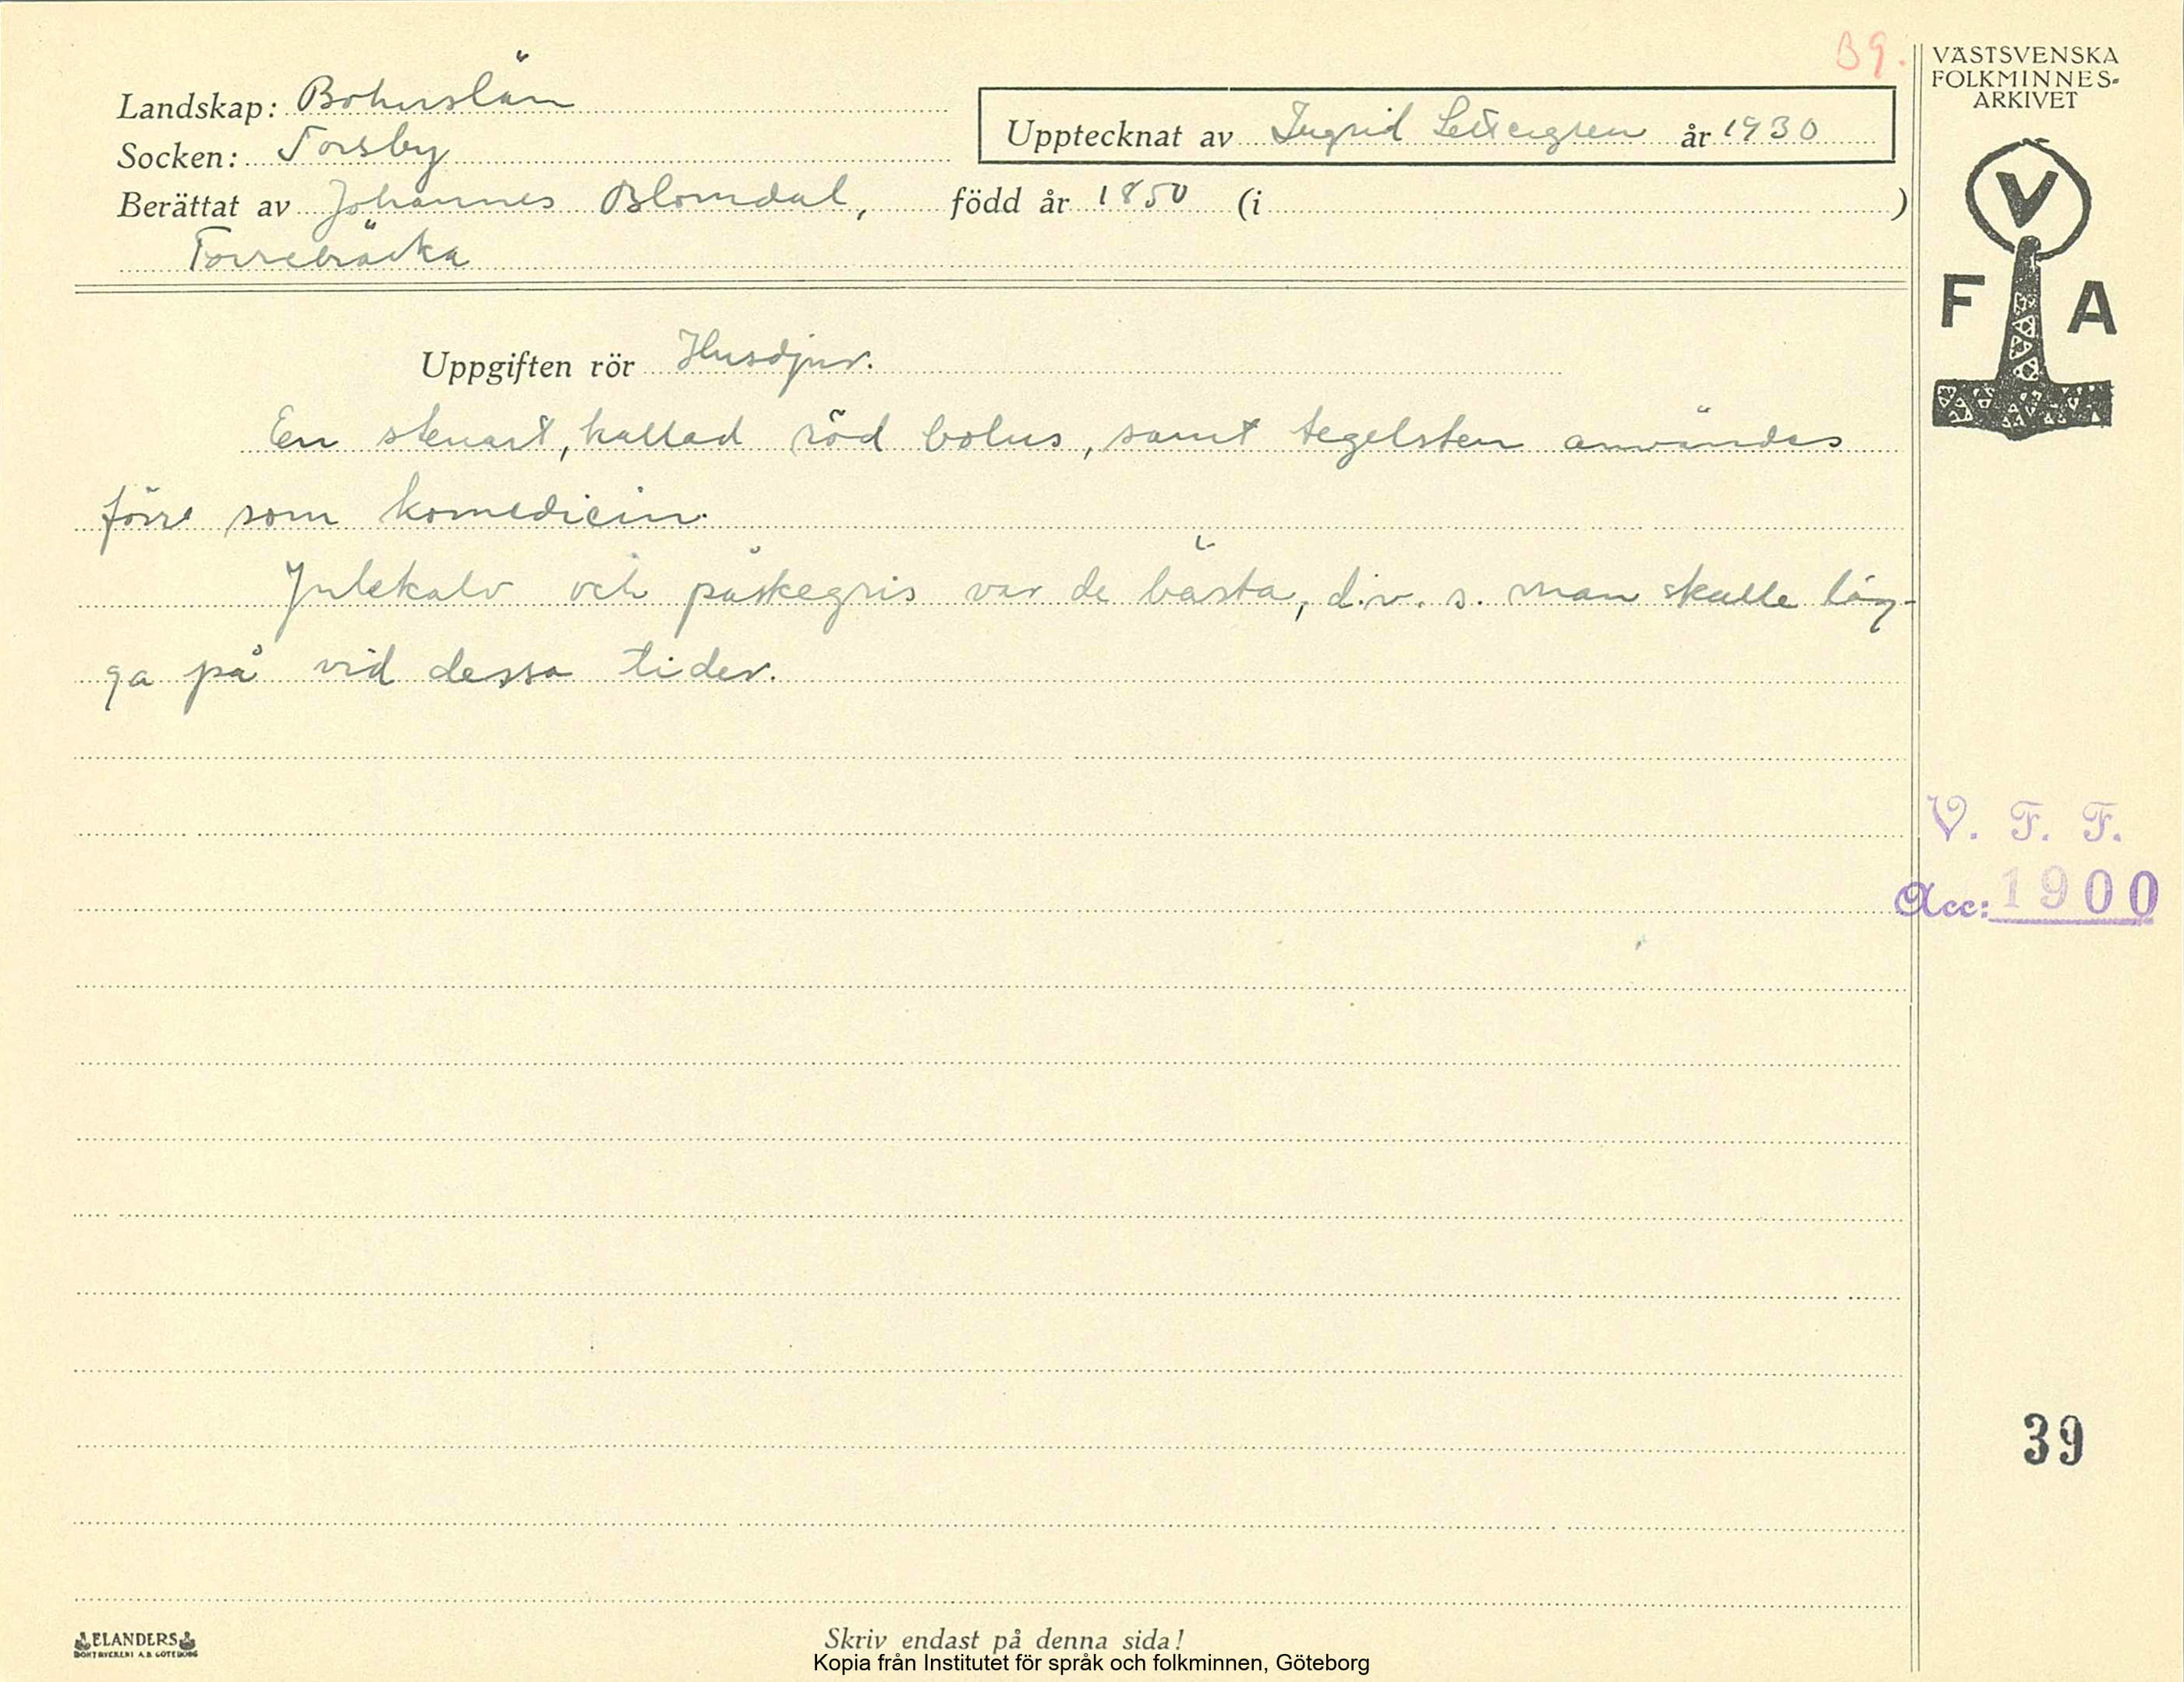 39.
Landskap: Bohuslän
Socken: Torsby
Upptecknat av Ingrid Settergren år 1930
Berättat av Johannes Blomdal, född år 1850 (i )
Torrebräcka
Uppgiften rör Husdjur.
En stenart, kallad röd bolus, samt tegelsten användes
förr som komedicin.
Julekalv och påskegris var de bästa, d.v.s. man skulle läg-
ga på vid dessa tider.
VÄSTSVENSKA
FOLKMINNES-
ARKIVET
V
F A
V. F. F.
Acc: 1900
39
ELANDERS
BOKTRYCKERI A.B. GÖTEBORG
Skriv endast på denna sida!
Kopia från Institutet för språk och folkminnen, Göteborg